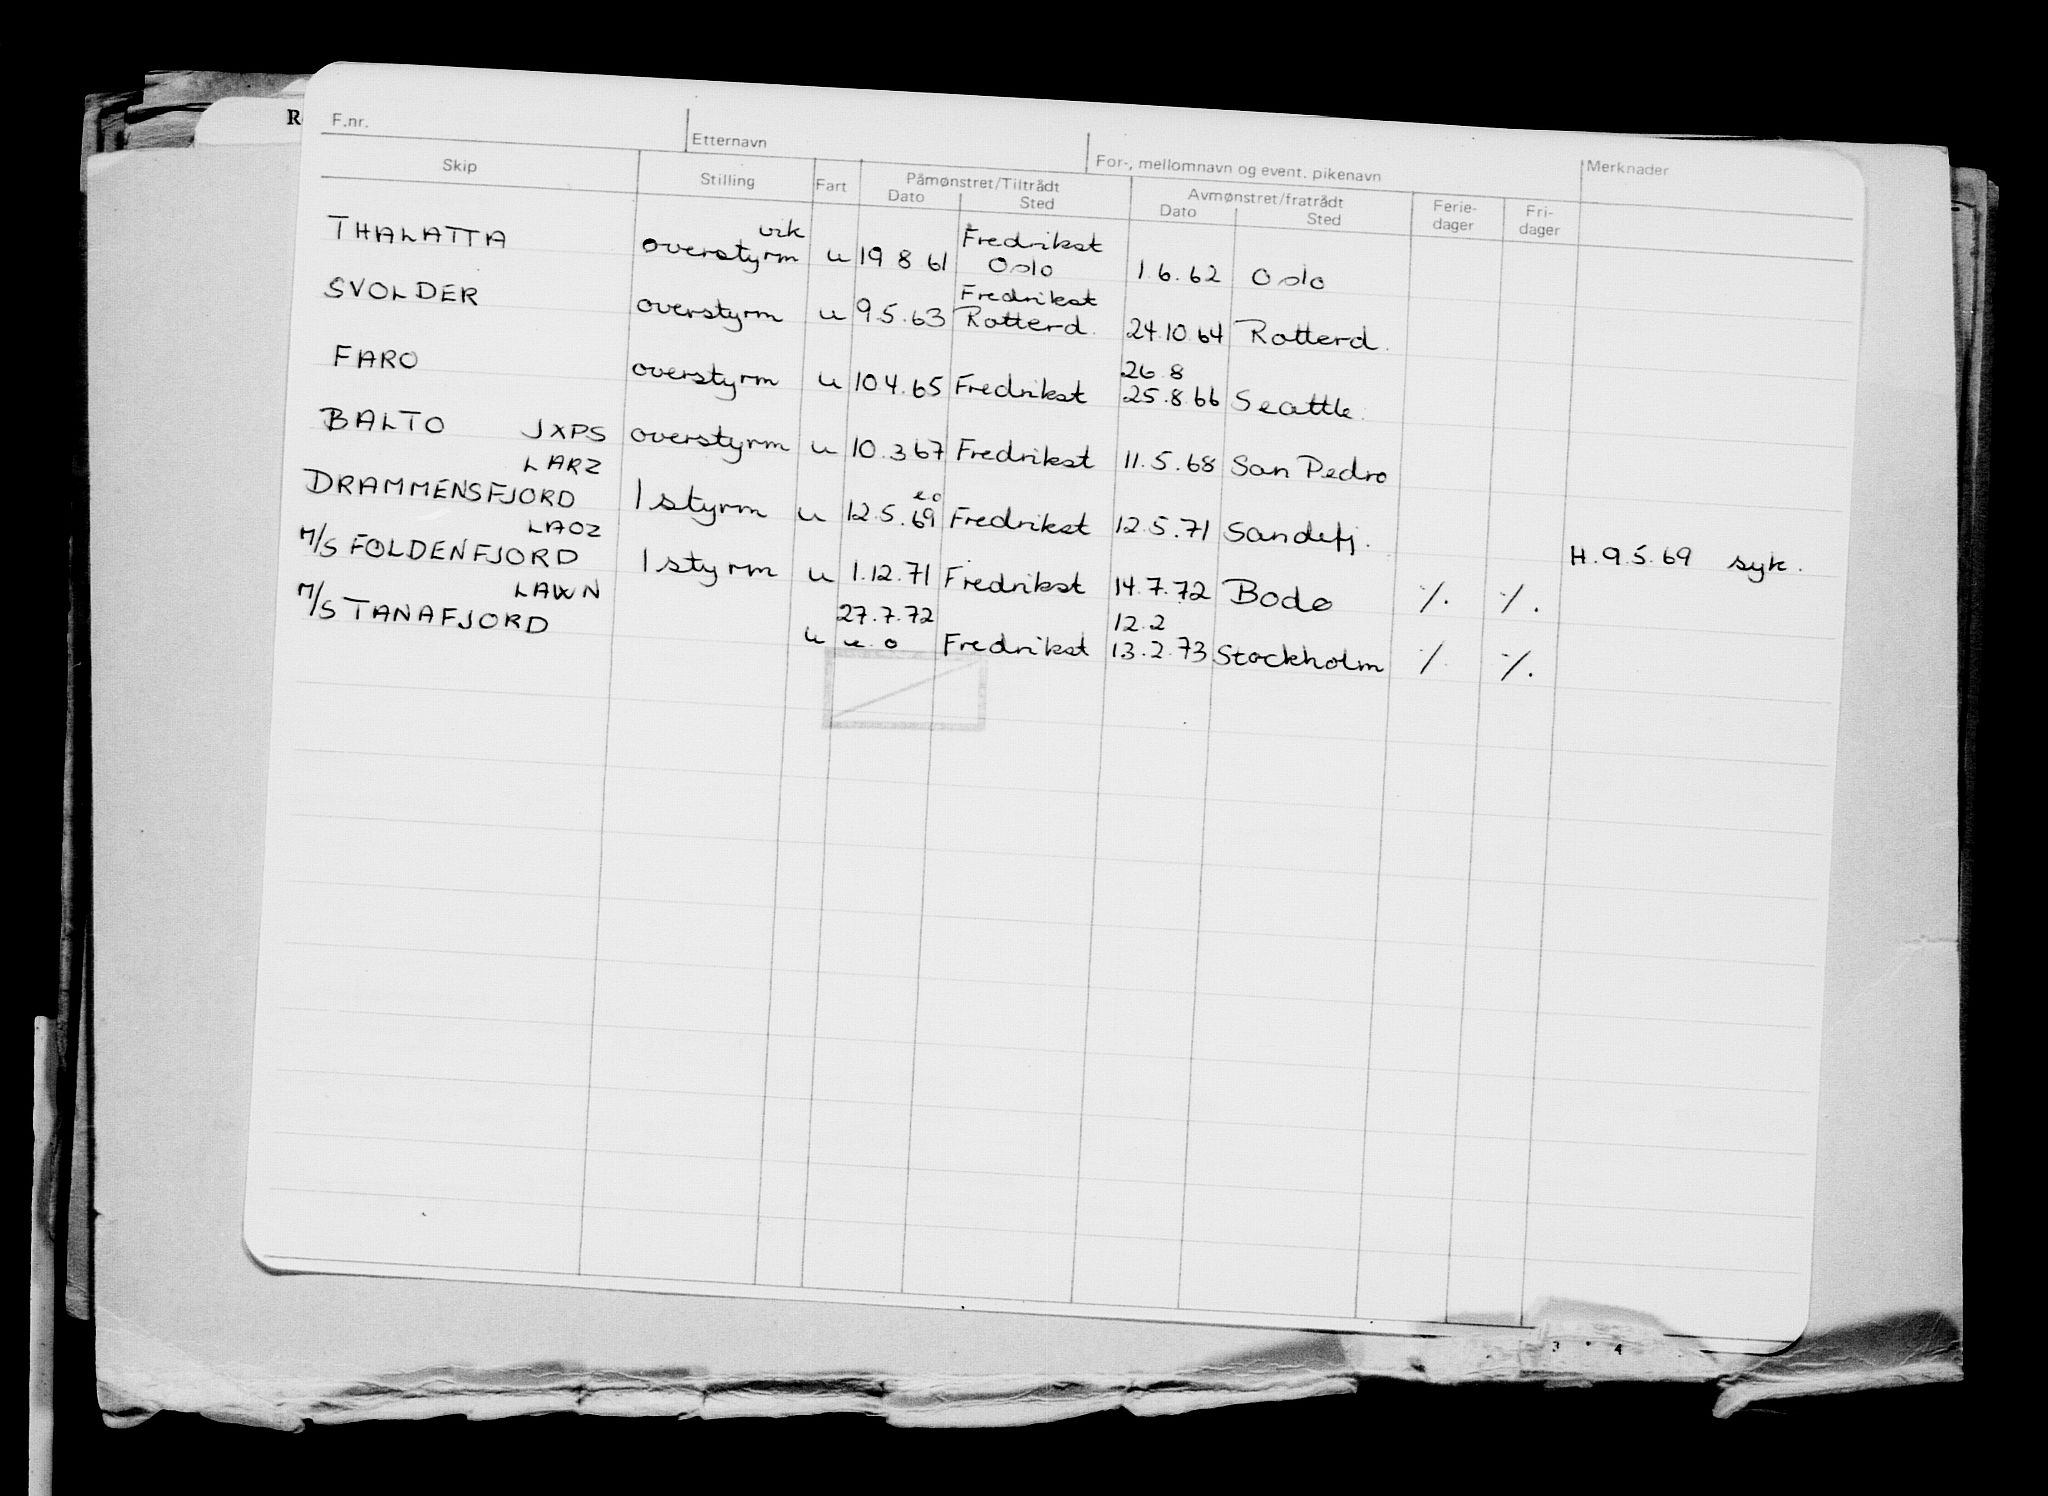 R
F.nr. Etternavn For-, mellomnavn og event. pikenavn Merknader
Skip Stilling Fart Påmønstret/Tiltrådt Avmønstret/fratrådt Ferie- Fri-
Dato Sted Dato Sted dager dager
vik Fredrikst
THALATTA overstyrm u 19 8 61 Oslo 1.6.62 Oslo
Fredrikst
SVOLDER overstyrm u 9.5.63 Rotterd. 24.10.64 Rotterd.
26.8
FARO overstyrm u 10.4.65 Fredrikst 25.8.66 Seattle.
BALTO JXPS overstyrm u 10.3.67 Fredrikst 11.5.68 San Pedro
LARZ e.o
DRAMMENSFJORD 1 styrm u 12.5.69 Fredrikst 12.5.71 Sandefj. H.9.5.69 syk.
LAOZ
M/S FOLDENFJORD 1 styrm u 1.12.71 Fredrikst 14.7.72 Bodø ./. ./.
LAWN 27.7.72 12.2
M/S TANAFJORD u e.o Fredrikst 13.2.73 Stockholm ./. ./.
3 4